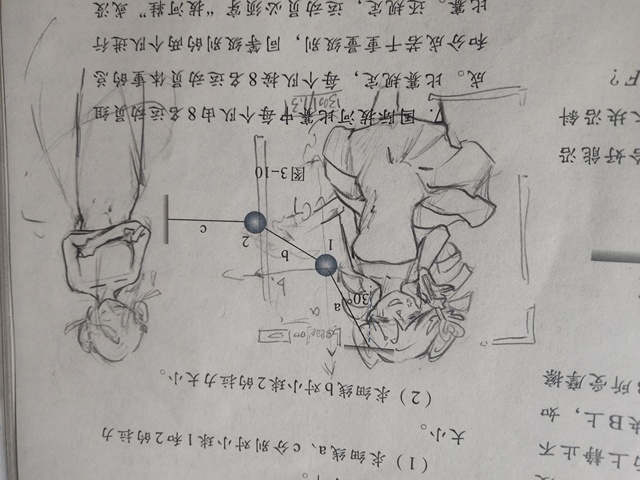 止不
B上，如
所受摩擦
好能沿
块沿斜
F？
（1）求细线a、c分别对小球1和2的拉力
大小。
（2）求细线b对小球2的拉力大小。
a
30°
1
b
2
c
图3-10
7. 国际拔河比赛中每个队由8名运动员组
成。比赛规定，每个队按8名运动员体重的总
和分成若干重量级别，同等级别的两个队进行
比赛。还规定，运动员必须穿“拔河鞋”或没